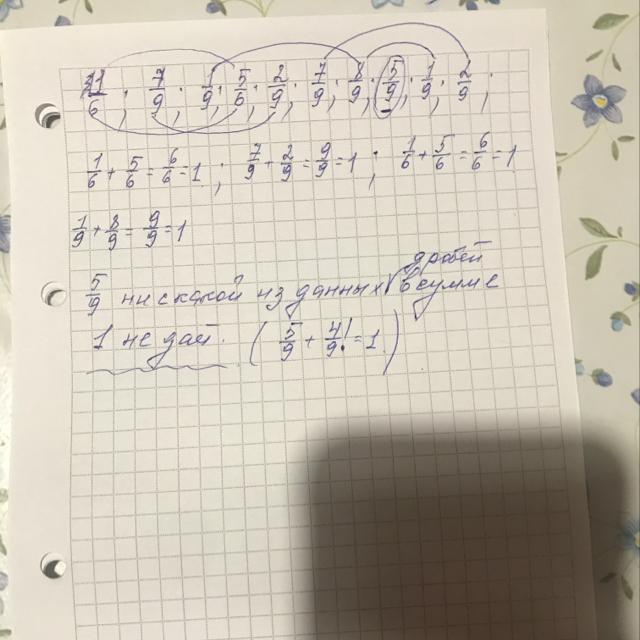 1/6; 7/9; 1/9; 5/6; 2/9; 7/9; 8/9; 5/9; 1/9; 2/9;
1/6 + 5/6 = 6/6 = 1; 7/9 + 2/9 = 9/9 = 1; 1/6 + 5/6 = 6/6 = 1
1/9 + 8/9 = 9/9 = 1
дробей
5/9 ни с какой из данных √ в сумме
1 не даст. (5/9 + 4/9! = 1)